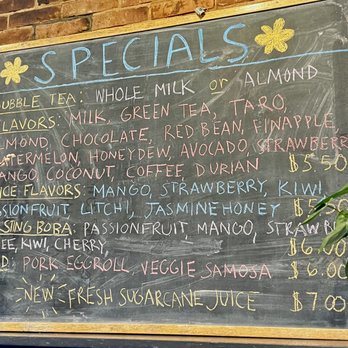 SPECIALS
BUBBLE TEA: WHOLE MILK or ALMOND
FLAVORS: MILK, GREEN TEA, TARO,
ALMOND, CHOCOLATE, RED BEAN, PINAPPLE
WATERMELON, HONEYDEW, AVOCADO, STRAWBERR
MANGO, COCONUT, COFFEE, DURIAN $5.50
ICE FLAVORS: MANGO, STRAWBERRY, KIWI
PASSIONFRUIT, LITCHI, JASMINE HONEY $5.50
SING BORA: PASSIONFRUIT, MANGO, STRAWB
EE, KIWI, CHERRY, $6.00
D: PORK EGGROLL VEGGIE SAMOSA $6.00
NEW FRESH SUGARCANE JUICE $7.00